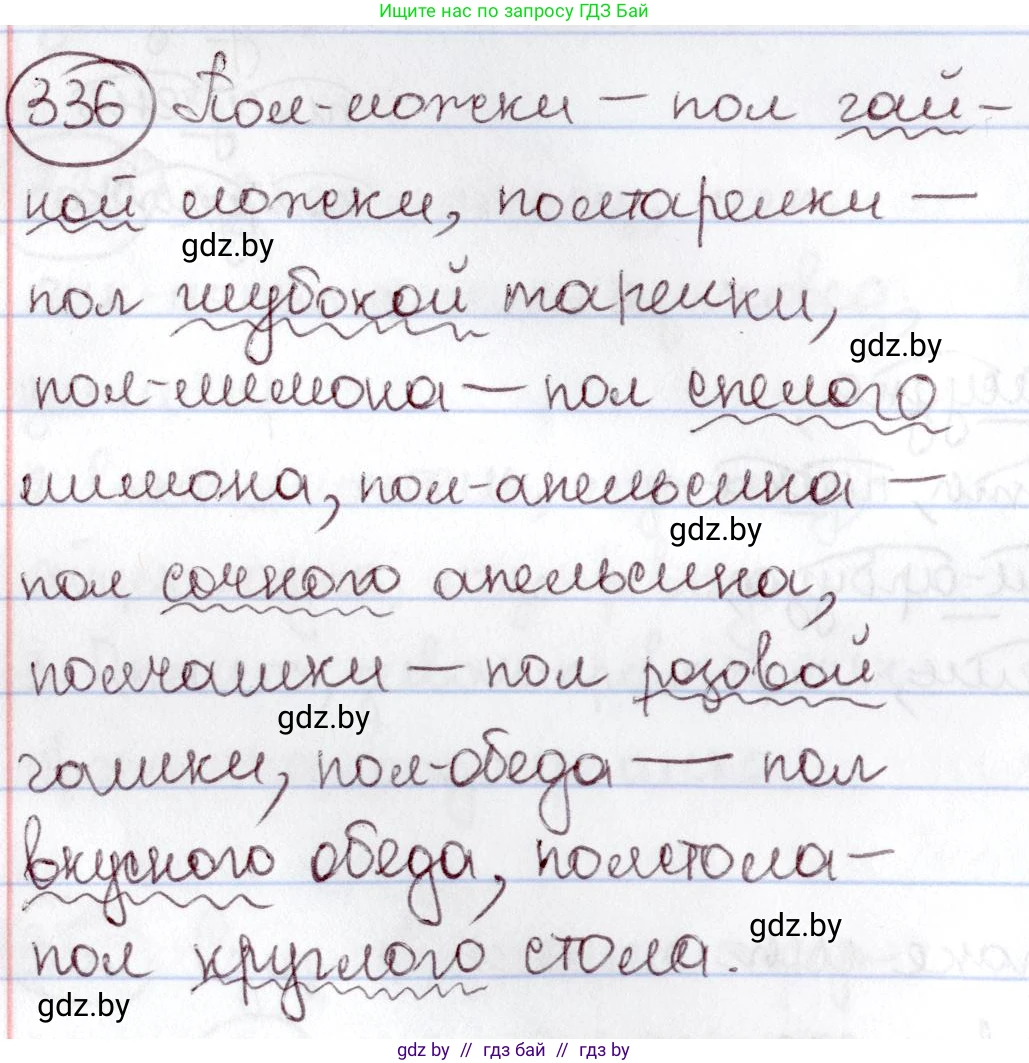 Ищите нас по запросу ГДЗ Бай
336 Пол-ложки — пол чай-
ной ложки, полтарелки —
gdz.by
пол глубокой тарелки,
gdz.by
пол-лимона — пол спелого
лимона, пол-апельсина —
gdz.by
пол сочного апельсина,
полчашки — пол розовой
gdz.by
чашки, пол-обеда — пол
вкусного обеда, полстола —
gdz.by
пол круглого стола.
gdz.by
gdz by // гдз бай // gdz by